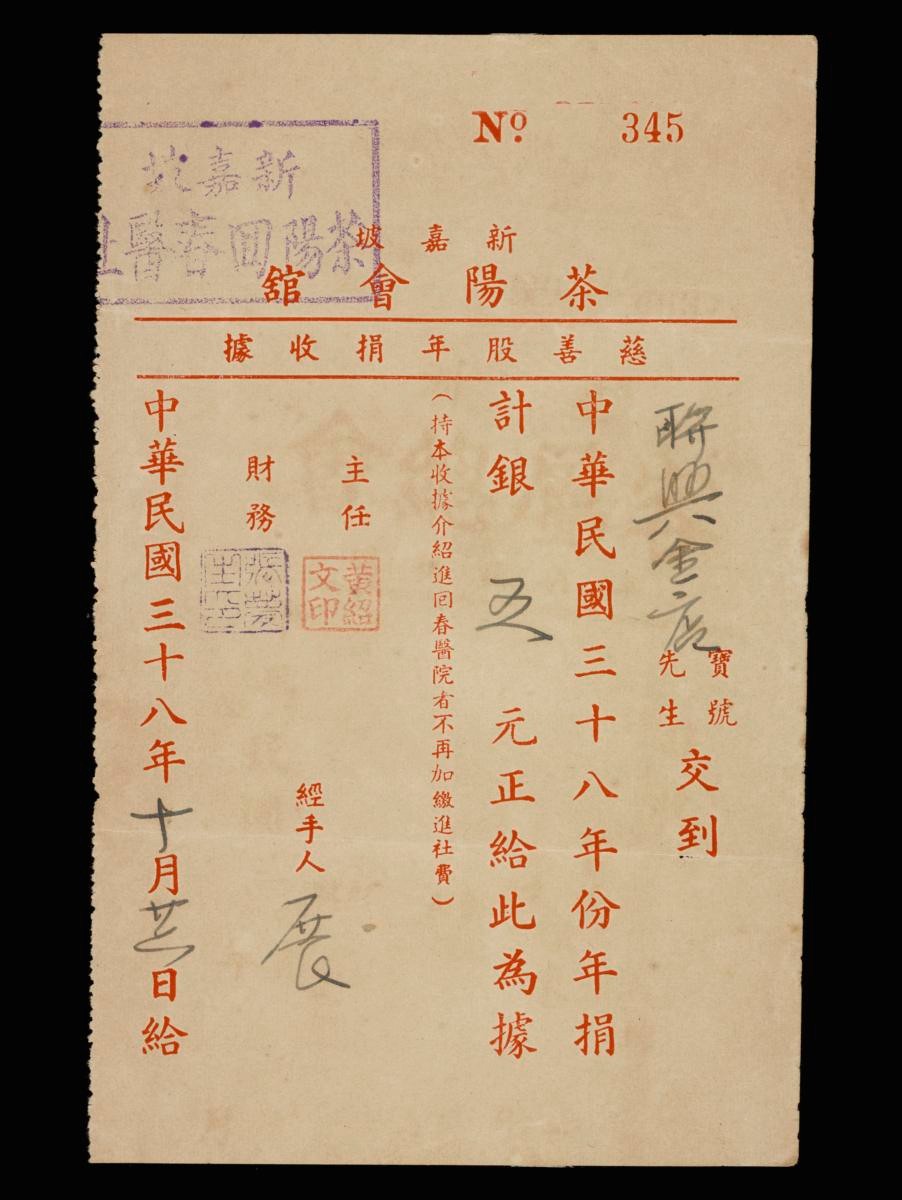 No. 345
新嘉坡
茶陽回春醫社
新嘉坡
茶陽會館
慈善股年捐收據
聯興金店
寶號
先生
交到
中華民國三十八年份年捐
計銀 五 元正給此為據
(持本收據介紹進回春醫院者不再加繳進社費)
主任
黃紹文印
財務
經手人 展
中華民國三十八年十月廿六日給